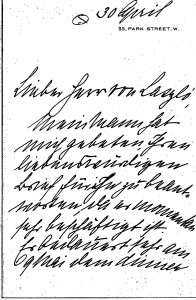 30 April
35, PARK STREET. W.
Lieber Herr von Laszló
Mein Mann hat
mich gebeten Ihren
liebenswürdigen
Brief für Ihn zu beant
worten, da er momentan
sehr beschäftigt ist.
Er bedauert sehr am
9 Mai dem dinner